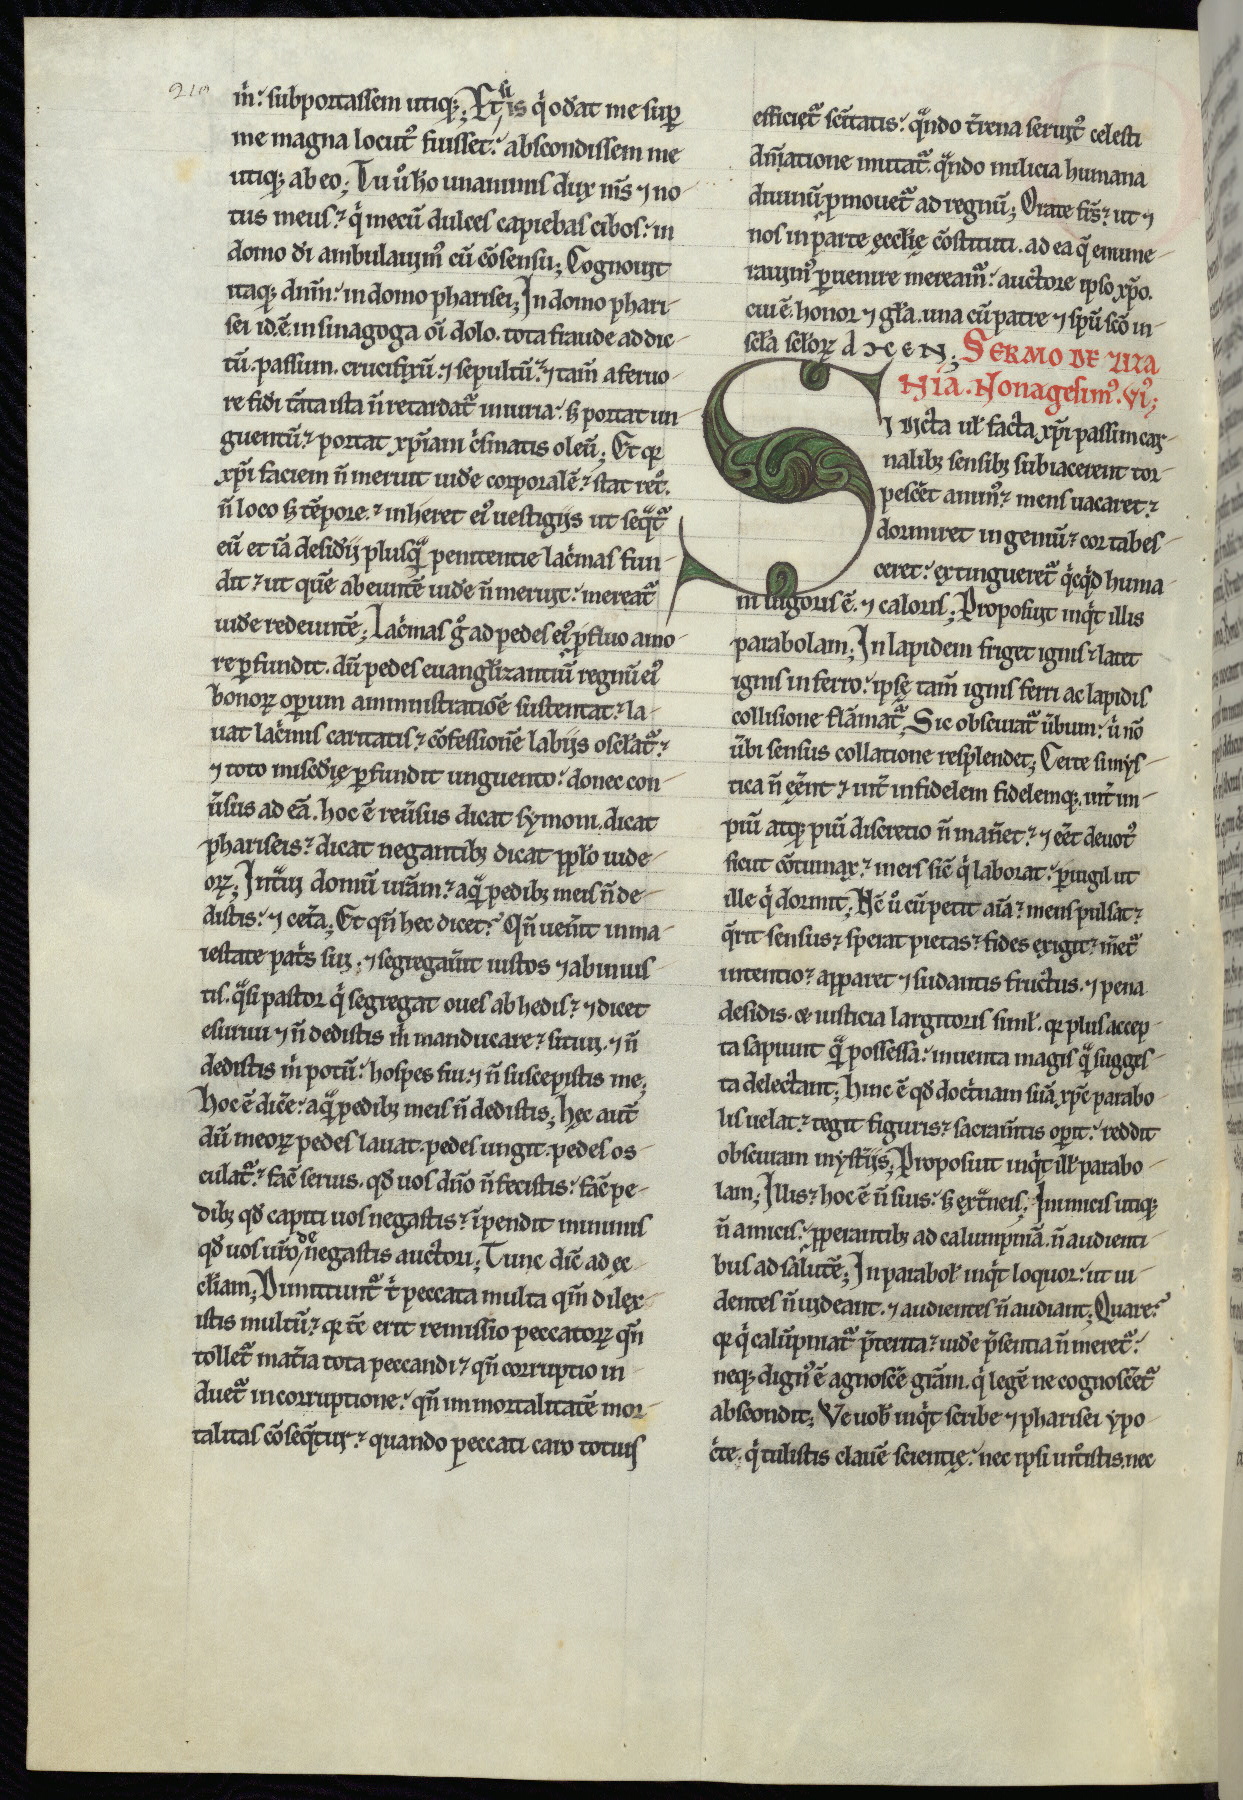 210
m̄. subportassem utiq;; Et si is q̇ oďat me sup̱
me magna locut᷒ fuisset. abscondissem me
utiq; ab eo; Tu u̇ ho unanimis dux m̄s ⁊ no
tus meus. q̇ mecū dulces capiebas cibos. in
domo d̄i ambulauim᷒ cū cōsensu; Cognouit
itaq; dn̄m. in domo pharisei; In domo phari-
sei id ē in sinagoga om̄i dolo. tota fraude ad dic-
tū. passum. crucifixū. ⁊ sepultū. ⁊ tam̄ a feruo-
re fidi tāta ista n̄ retardat᷑ iniuria. s; portat un
guentū. portat xp̄iam c̄simatis oleū; Et qr
xp̄i faciem n̄ meruit uid̄e corporalē. stat ret᷒.
n̄ loco s; tēpore. inheret ei᷒ uestigijs ut seq̄t᷑
eū et iā desidīj plusq̄ penitentie lac̄mas fun
dit. ut quē abeuntē uid̄e n̄ meruit. mereat᷑
uid̄e redeuntē; Lac̄mas ḡ ad pedes ei᷒ p̄fluo amo-
re ꝑfundit. dū pedes euangƚizantiū regnū ei᷒
bonoꝝ oꝑum amministratiōe sustentat. la-
uat lac̄mis caritatis. cōfessionē labijs oscƚat᷑.
⁊ toto mis̄c̄die ꝑfundit unguento. donec con-
ūsus ad eā. hoc ē reūsus dicat symoni. dicat
phariseis. dicat negantib; dicat ppƚo iude-
oꝝ; Intᷓui domū ur̄am. aq̄ pedib; meis n̄ de-
distis. ⁊ cet̄a; Et qn̄ hec dicet. Qn̄ uen̄it in ma-
iestate pat̄s sui. ⁊ segregaū̄it iustos ⁊ ab inius
tis. q̄si pastor q̇ segregat oues ab hedis. ⁊ dicet
esuriui ⁊ n̄ dedistis m̄ manducare. sitiui. ⁊ n̄
dedistis m̄ potū. hospes fui. ⁊ n̄ suscepistis me;
Hoc ē dic̄e. aq̄ pedib; meis n̄ dedistis; hęc aut̄
dū meoꝝ pedes lauat. pedes ungit. pedes os-
culat᷑. fac̄ seruis. qd̄ uos dn̄o n̄ fecistis. fac̄ pe-
dib; qd̄ capiti uos negastis. īpendit minimis
qd̄ uos ur̄o denegastis auctori; Tunc dic̄ ad ec-
cƚiam; Dimittunt᷑ t̄ peccata multa qm̄ dilex-
isti multū. qr tc̄ erit remissio peccatoꝝ qn̄
tollet᷑ mat̄ia tota peccandi. qn̄ corruptio in
duet᷑ incorruptione. qn̄ immortalitatē mor-
talitas cōseq̄tur. quando peccati caro totius
efficiet᷑ sc̄itatis. qn̄do t̄rena seruit᷒ celesti
dn̄atione mutat᷑. qn̄do milicia humana
diuinū p̱mouet᷑ ad regnū; Orate fr̄s. ut ⁊
nos in parte eccƚie cōstituti. ad ea q̄ enume-
rauim᷒ ꝑuenire meream᷑. auctore ipso xp̄o.
cui ē. honor ⁊ gƚa. una cū patre ⁊ spū sc̄o in
scƚa scƚoꝝ AMEN; SERMO DE ZIZA
NIA. Nonagesim᷒. vi᷒;
Si dicta uƚ facta xp̄i passim car-
nalib; sensib; subiacerent tor-
pesc̄et anim᷒. mens uacaret.
dormiret ingeniū. cor tabes-
ceret. extingueret᷑ q̇cq̇d huma-
ni uigoris ē. ⁊ caloris; Proposuit inq̇t illis
parabolam; In lapidem friget ignis. latet
ignis in ferro. ipse tam̄ ignis ferri ac lapidis
collisione flāmat᷑; Sic obscurat᷑ ūbum. ū no
ūbi sensus collatione resplendet; Certe si mys-
tica n̄ eēnt. int̄ infidelem fidelemq;. int̄ im-
piū atq; piū discretio n̄ man̄et. ⁊ eēt deuot᷒
sicut cōtumax. iners sic̄ q̇ laborat. ꝑuigil ut
ille q̇ dormit; Nc̄ u̇ cū petit aīa. mens pulsat.
q̄rit sensus. sperat pietas. fides exigit. m̄et᷑
intentio. apparet ⁊ sudantis fructus. ⁊ pena
desidis. & iusticia largitoris simƚ. qr plus accep-
ta sapiunt q̄ possessa. inuenta magis q̄ sugges-
ta delectant; hinc ē qd̄ doct̄nam suā xp̄c parabo-
lis uelat. tegit figuris. sacram̄tis oꝑit. reddit
obscuram myst̄ijs; Proposuit inq̇t ilƚ parabo-
lam; Illis. hoc ē n̄ suis. s; extᷓneis; Inimicis utiq;
n̄ amicis. ꝓperantib; ad calumpniā. n̄ audienti-
bus ad salutē; In paraboƚ inq̇t loquor. ut ui-
dentes n̄ uideant. ⁊ audientes n̄ audiant; Quare.
qr q̇ calūpniat᷑ p̄terita. uid̄e p̄sentia n̄ meret᷑.
neq; dign᷒ ē agnosc̄e grām. q̇ legē ne cognosc̄et᷑
abscondit; Ve uob inq̇t scribe ⁊ pharisei ypo-
c̄te. q̇ tulistis clauē scientię. nec ipsi int̄istis. nec